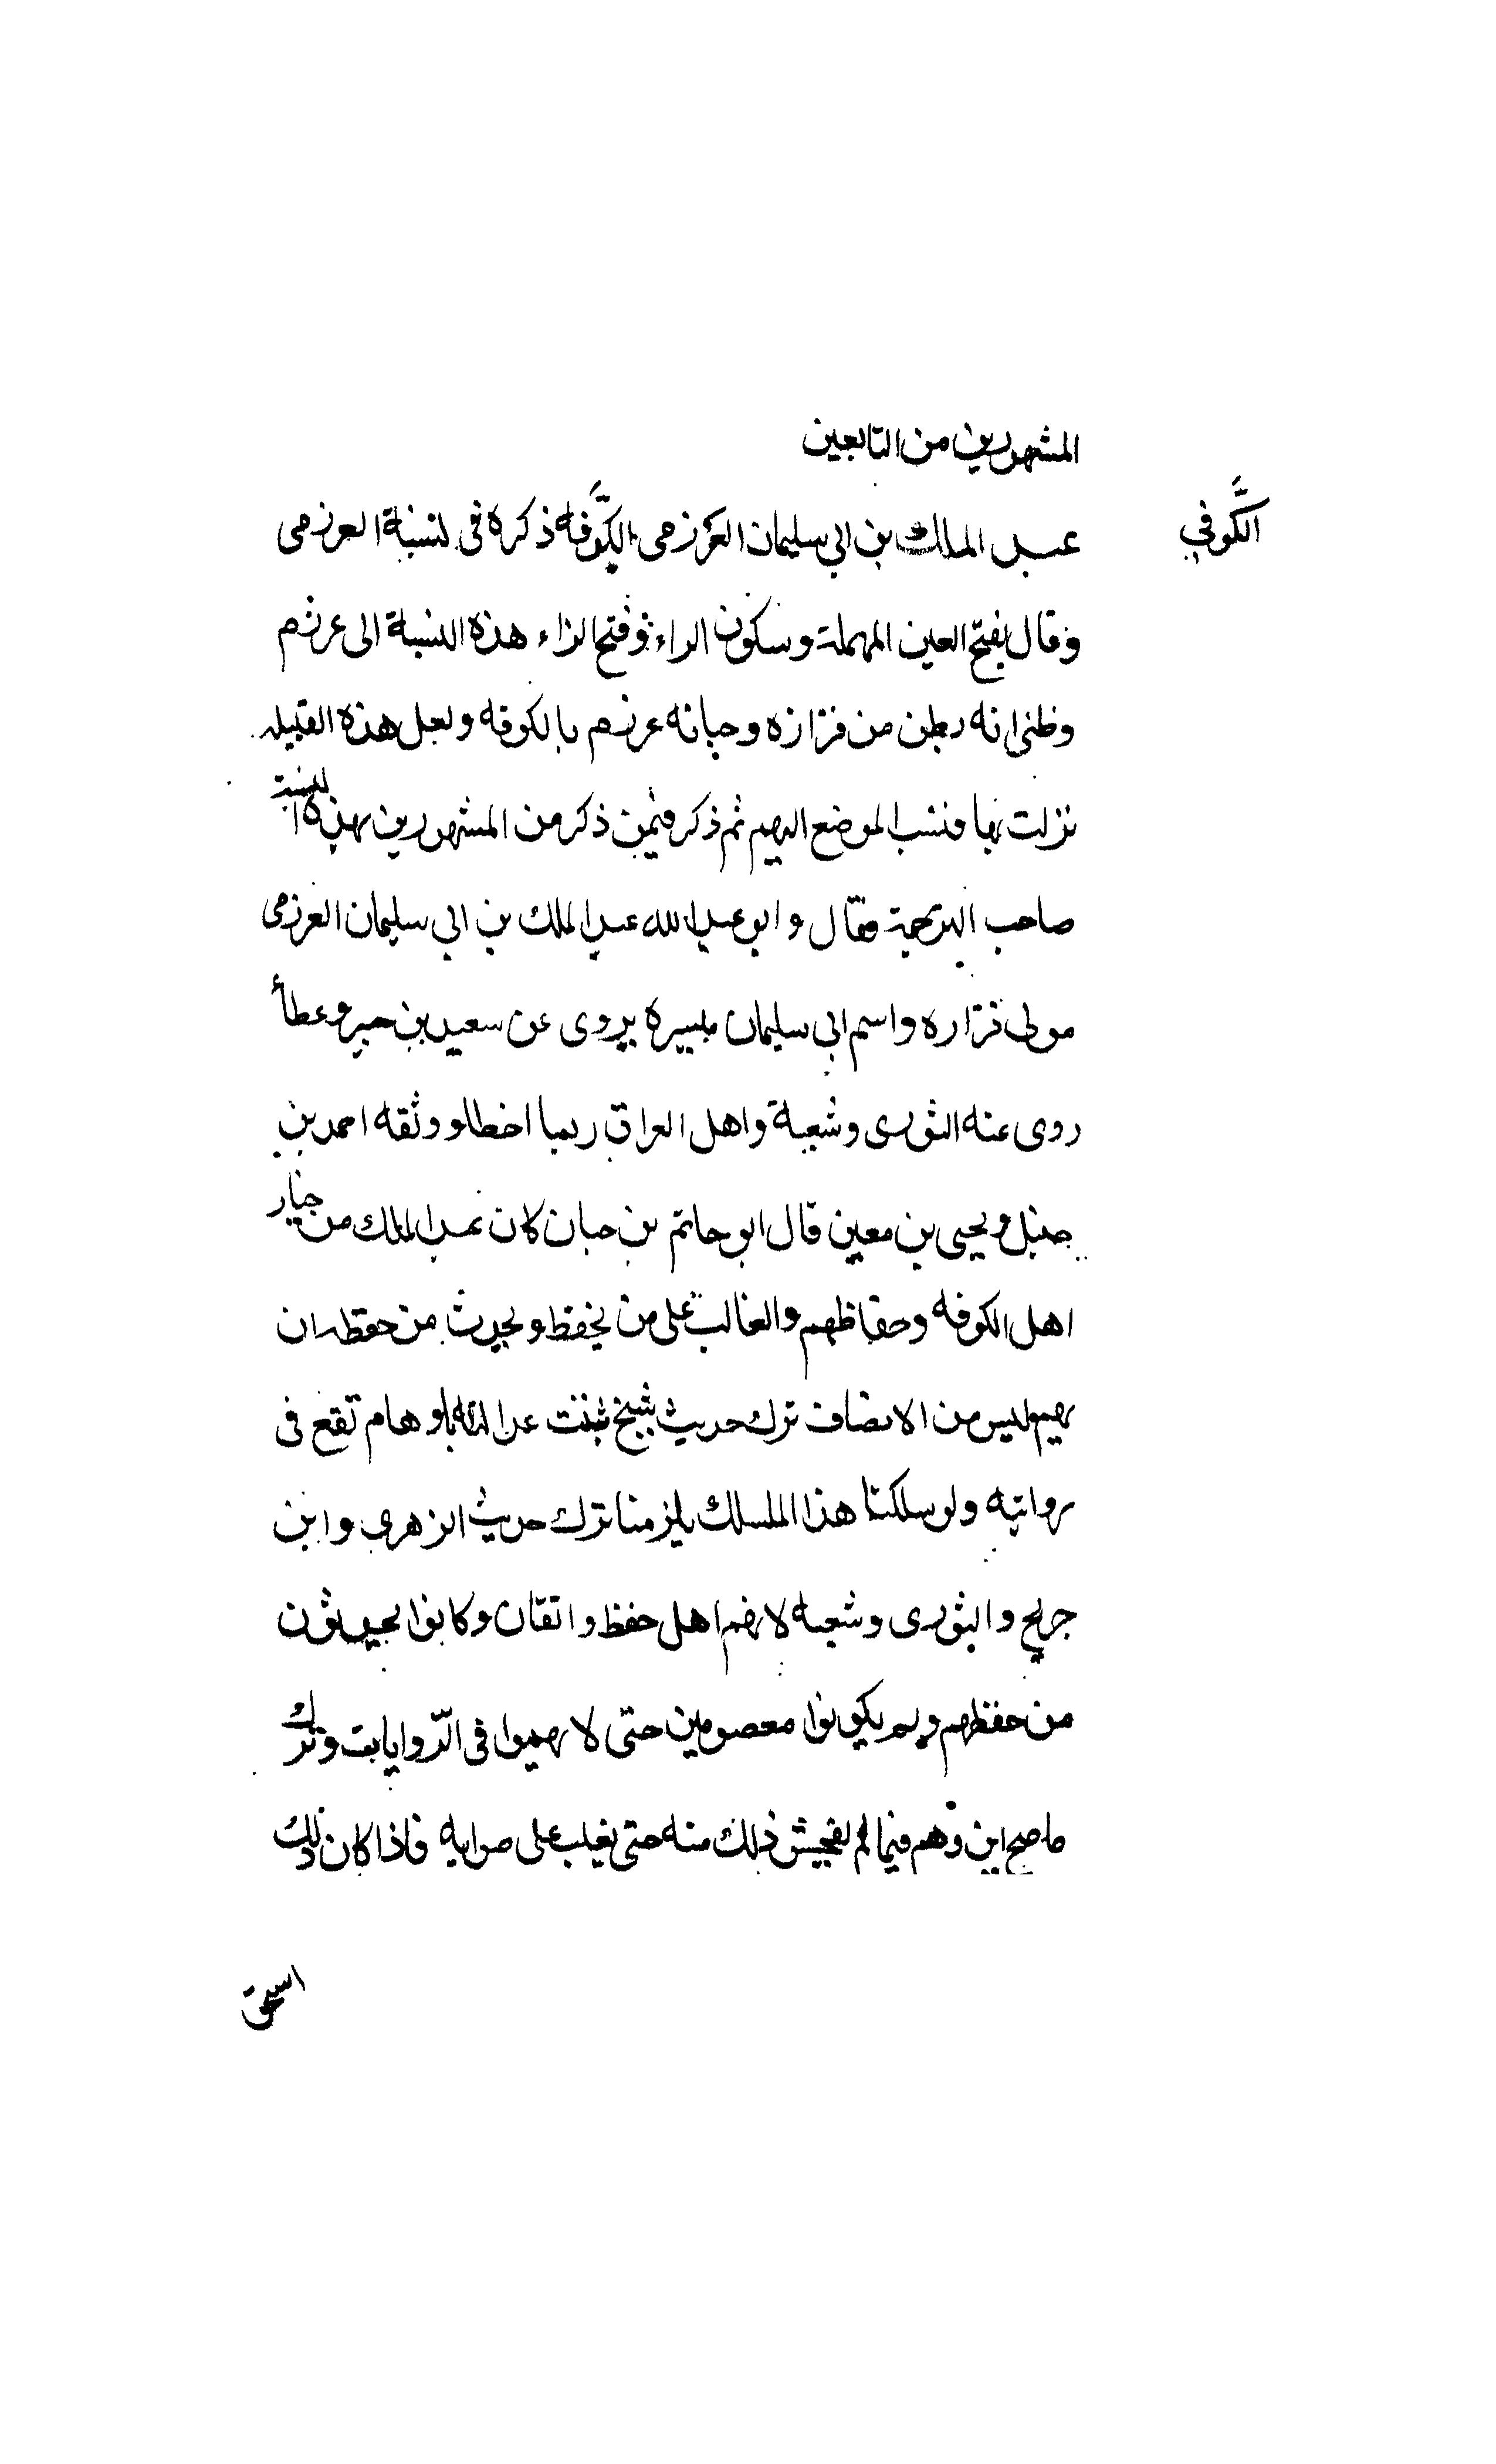 المشهورين من التابعين
الكَّوفي
عبد الملك بن ابي سليمان العرزمي الكَّوفه ذكره في لنسبة العرزمي
وقال بفتح العين المهملة وسكون الراء وفتح الزاء هذه النسبة الى عرزم
وظني انه بطن من فزازه وجبانه عرزم بالكوفه ولعل هذه القبيله
نزلت بها فنسب الموضع اليهم ثم ذكر فيمن ذكر من المشهورين بهذه النسبة
صاحب الترجمة فقال و ابو عبد الله عبد الملك بن ابي سليمان العرزمي
مولى فزاره واسم ابي سليمان ميسره يروى عن سعيد بن جبير وعطاأ
روى عنه الثورى وشعبة واهل العراق ربما اخطاء ووثقه احمد بن
حنبل ويحيى بن معين قال ابو حاتم بن حبان كان عبد الملك من خيار
اهل الكوفه وحفاظهم والغالب على من يحفظ ويحدث من حفظه ان
يهم وليس من الانصاف ترك حديث شيخ ثبتت عدالته باوهام تقع فى
روايته ولو سلكنا هذا المسلك يلزمنا ترك حديث الزهرى وابن
جريج والثورى وشعبه لانهم اهل حفظ واتقان وكانوا يحدثون
من حفظهم ولم يكونوا معصومين حتى لا يهموا فى الرّوايات وترك
ما صح اين وهم فيما لم يفحش ذلك منه حتى يغلب على صوابه فاذا كان ذلك